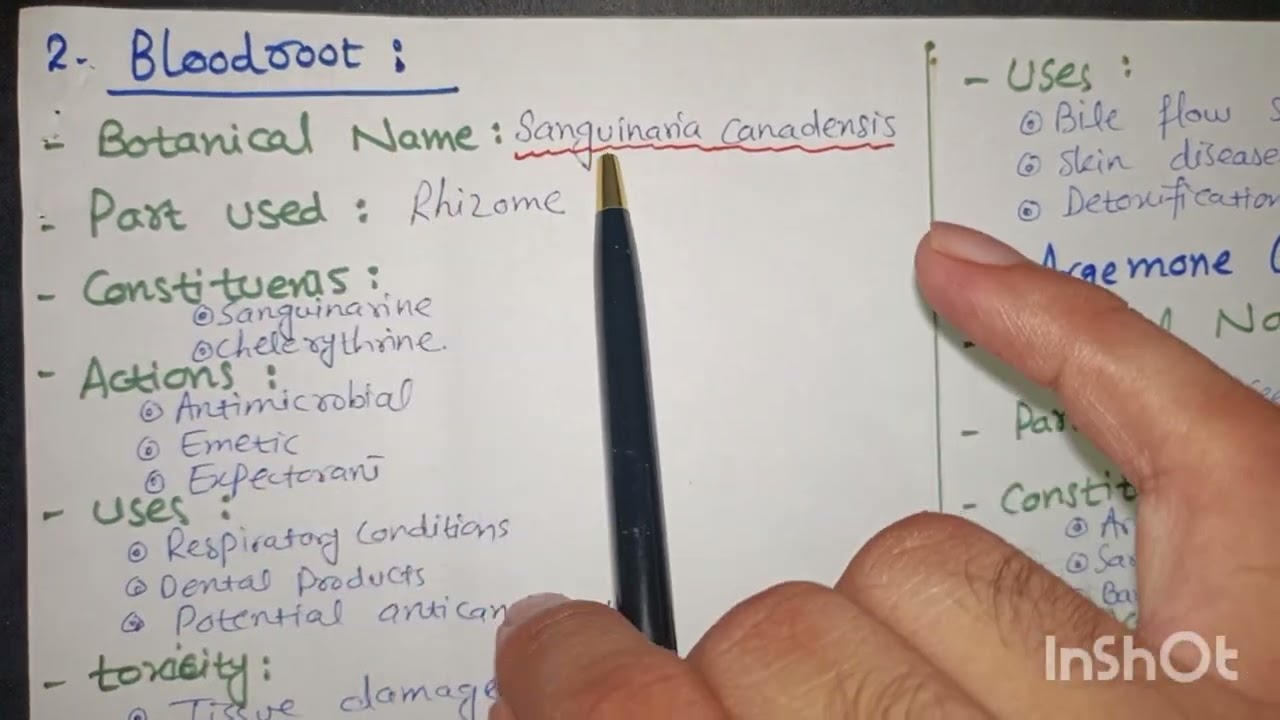 2. Bloodroot :
- Botanical Name : Sanguinaria canadensis
- Part used : Rhizome
- Constituents :
Sanguinarine
chelerythrine.
- Actions :
Antimicrobial
Emetic
Expectorant
- Uses :
Respiratory Conditions
Dental Products
Potential antican
- toxicity :
Tissue damage
- Uses :
Bile flow S
Skin disease
Detoxification
Argemone (
No
- Par
- Constit
Ar
Sa
Ba
InShOt